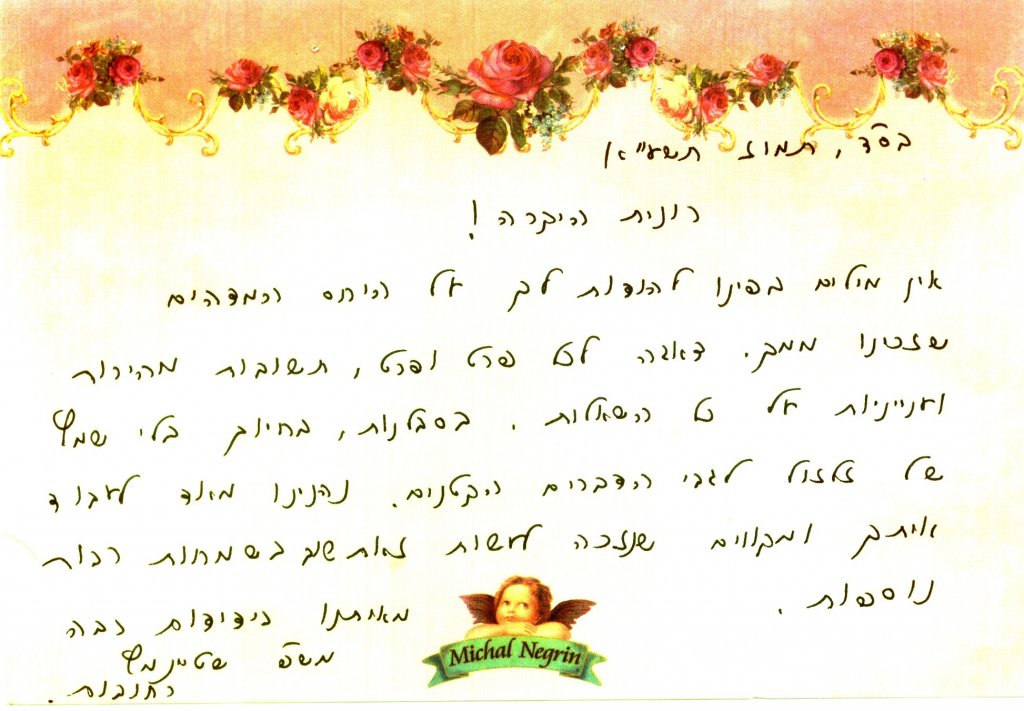 בס"ד, תמוז תשע"א
רונית היקרה!
אין מילים בפינו להודות לך על היחס המדהים
שזכינו ממך. דאגה לכל פרט ופרט, תשובות מהירות
וענייניות על כל השאלות. בסבלנות, בחיוך בלי שמץ
של זלזול לגבי הדברים הקטנים. נהנינו מאוד לעבוד
איתך ומקווים שנזכה לעשות זאת שוב בשמחות רבות
נוספות.
מאיתנו בידידות רבה
משפ' שטיינמץ
רחובות.
Michal Negrin